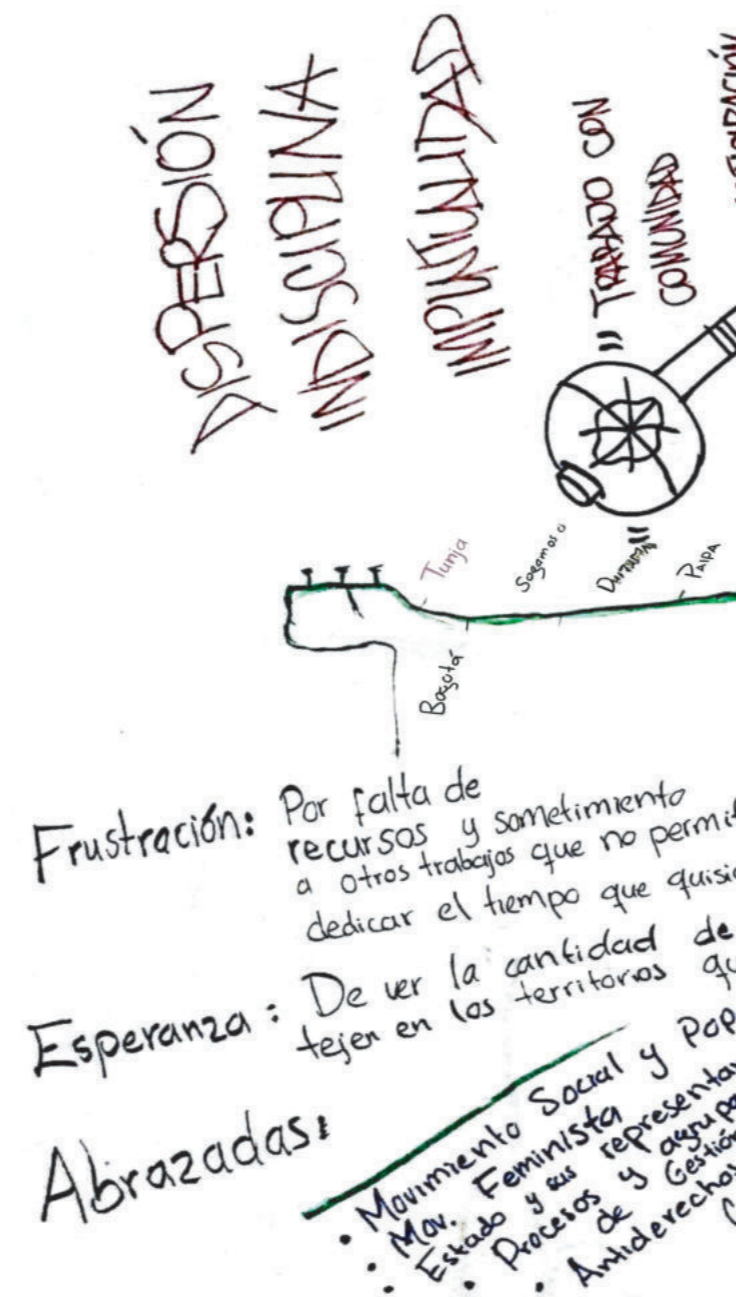 DISPERSIÓN
INDISCIPLINA
IMPUNTUALIDAD
CON
COMUNIDAD
Tunja
Sogamoso
PAIPA
Bogotá
Frustración: Por falta de
recursos y sometimiento
a otros trabajos que no permit
dedicar el tiempo que quisie
Esperanza: De ver la cantidad de
tejen en los territorios qu
Abrazadas:
• Movimiento Social y Pop
• Mov. Feminista
• Estado y sus representan
• Procesos y agrupa
de Gestión
• Antiderechos